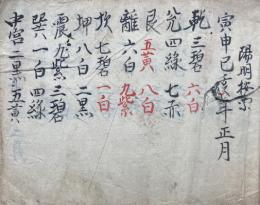 陽明按索
寅申巳亥年正月
乾三碧 六白
兌四綠 七赤
艮五黃 八白
離六白 九紫
坎七碧 一白
坤八白 二黑
震九紫 三碧
巽一白 四綠
中宮二黑 五黃